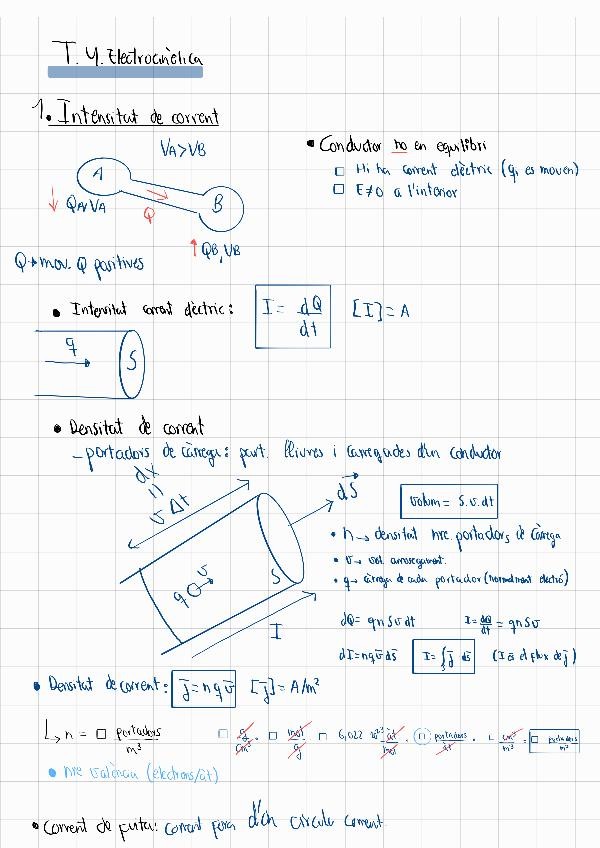 T. 4. Electrocinètica
1. Intensitat de corrent
VA > VB
A
B
↓ QA, VA
Q
↑ QB, VB
Q → mov. Q positives
• Conductor no en equilibri
□ Hi ha corrent elèctric (q, es mouen)
□ E≠0 a l'interior
• Intensitat corrent elèctric: I = dQ/dt [I] = A
q
S
• Densitat de corrent
- portadors de càrrega: part. lliures i carregades d'un conductor
dx
=
v Δt
dS
q v
S
I
volum = S.v.dt
• n → densitat nre. portadors de càrrega
• v → vel. arrossegament.
• q → càrrega de cada portador (normalment electró)
dQ = q n S v dt I = dQ/dt = q n S v
dI = n q v dS I = ∫s j dS (I és el flux de j)
• Densitat de corrent: j = n q v [j] = A/m²
↳ n = □ portadors/m³ □ g/cm³ · □ mol/g □ 6,022 at/mol · n portadors/at · cm³/m³ = □ portadors/m³
• nre valència (electrons/at)
• Corrent de fuita: corrent fora d'un circuit corrent